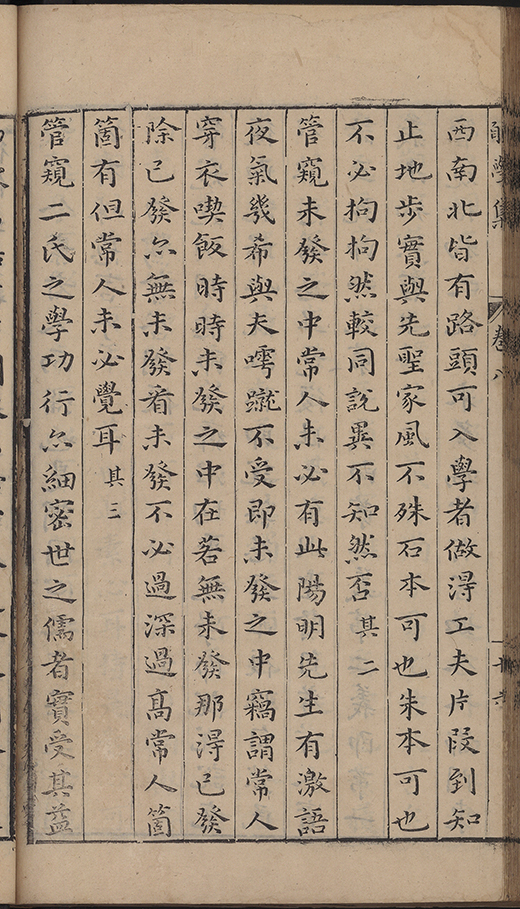 西南北皆有路頭可入學者做淂工夫片段到知
止地步實與先聖家風不殊石本可也朱本可也
不必拘拘然較同說異不知然否其二
管窺未發之中常人未必有此陽明先生有激語
夜氣幾希與夫嘑蹴不受即未發之中竊謂常人
穿衣喫飯時時未發之中在若無未發那淂已發
除已發亦無未發看未發不必過深過高常人箇
箇有但常人未必覺耳其三
管窺二氏之學功行亦細密世之儒者實受其益